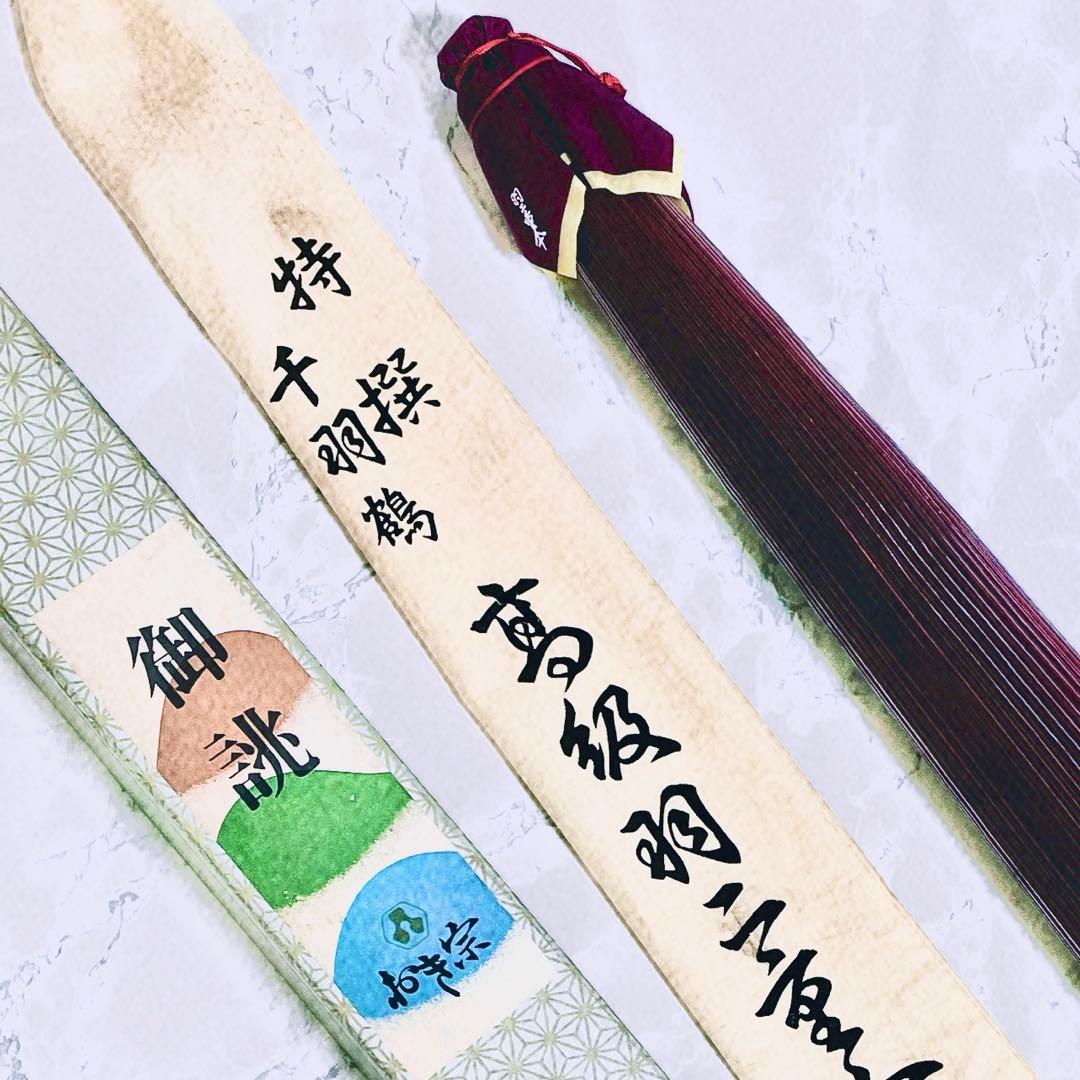 特撰
千羽鶴
高級羽二重
御誂
おき宗